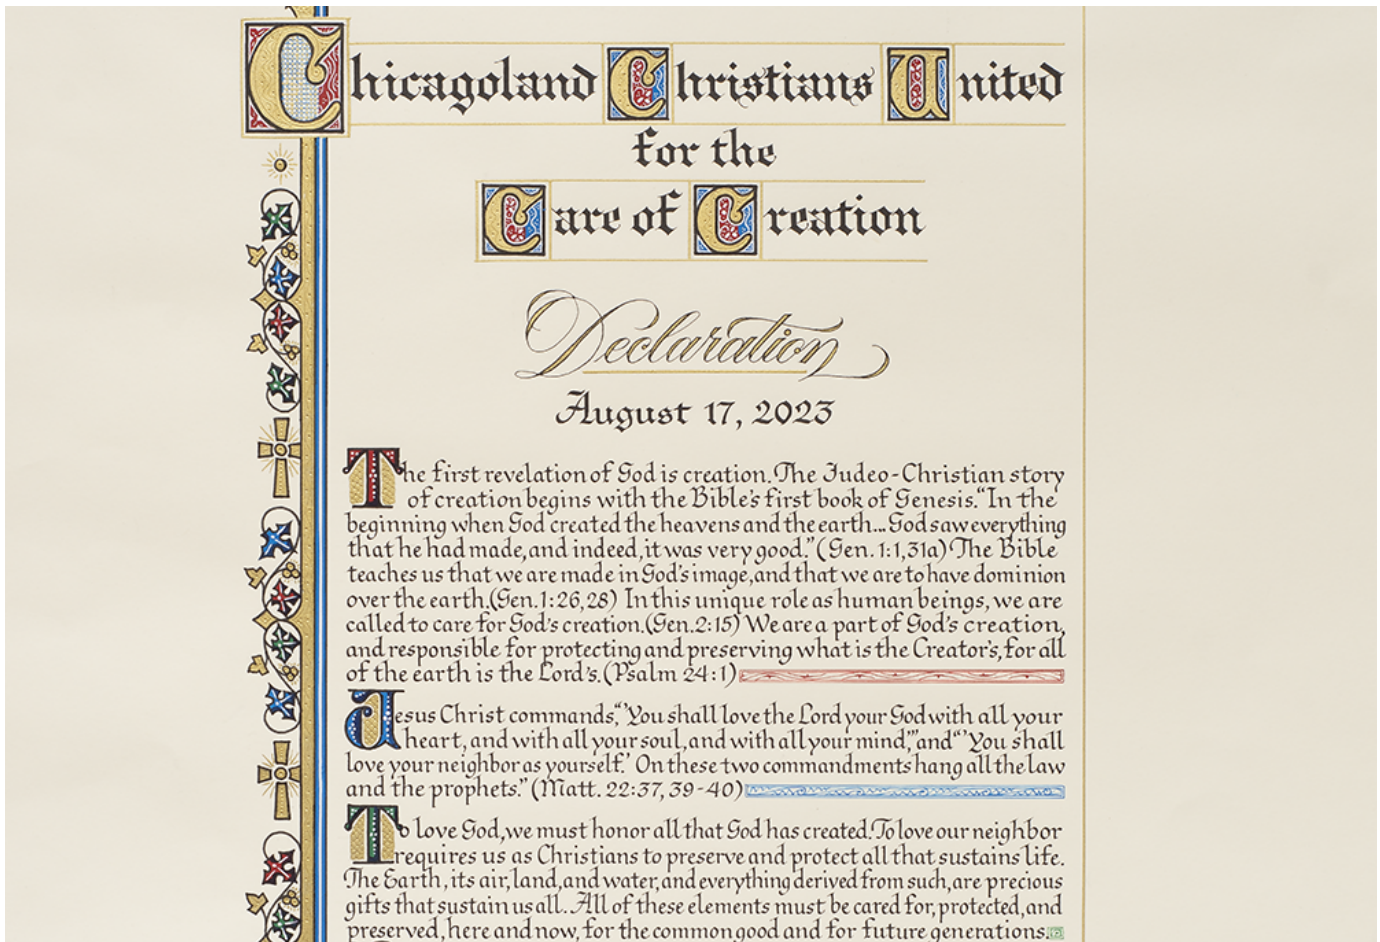 Chicagoland Christians United
for the
Care of Creation
Declaration
August 17, 2023
The first revelation of God is creation. The Judeo-Christian story
of creation begins with the Bible's first book of Genesis. “In the
beginning when God created the heavens and the earth... God saw everything
that he had made, and indeed, it was very good.” (Gen. 1:1,31a) The Bible
teaches us that we are made in God's image, and that we are to have dominion
over the earth. (Gen. 1:26,28) In this unique role as human beings, we are
called to care for God's creation. (Gen. 2:15) We are a part of God's creation,
and responsible for protecting and preserving what is the Creator's, for all
of the earth is the Lord's. (Psalm 24:1)
Jesus Christ commands, “‘You shall love the Lord your God with all your
heart, and with all your soul, and with all your mind,’” and “‘You shall
love your neighbor as yourself.’ On these two commandments hang all the law
and the prophets.” (Matt. 22:37, 39-40)
To love God, we must honor all that God has created. To love our neighbor
requires us as Christians to preserve and protect all that sustains life.
The Earth, its air, land, and water, and everything derived from such, are precious
gifts that sustain us all. All of these elements must be cared for, protected, and
preserved, here and now, for the common good and for future generations.